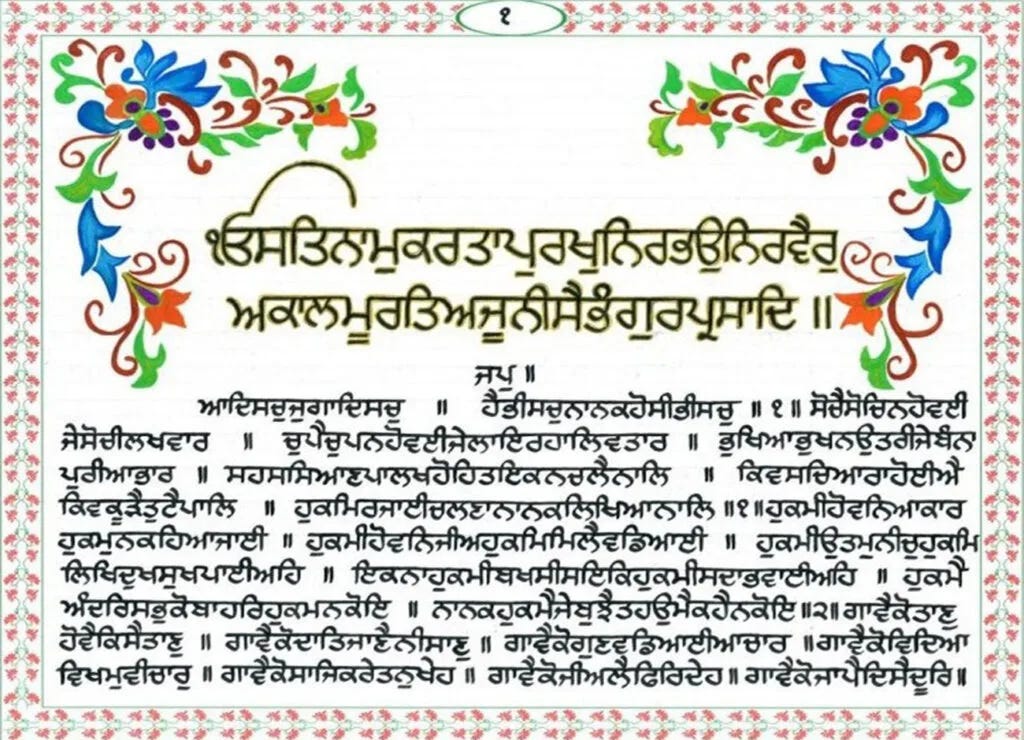 ੧
ੴਸਤਿਨਾਮੁਕਰਤਾਪੁਰਖੁਨਿਰਭਉਨਿਰਵੈਰੁ
ਅਕਾਲਮੂਰਤਿਅਜੂਨੀਸੈਭੰਗੁਰਪ੍ਰਸਾਦਿ ॥
ਜਪੁ ॥
ਆਦਿਸਚੁਜੁਗਾਦਿਸਚੁ ॥ ਹੈਭੀਸਚੁਨਾਨਕਹੋਸੀਭੀਸਚੁ ॥ ੧॥ ਸੋਚੈਸੋਚਿਨਹੋਵਈ
ਜੇਸੋਚੀਲਖਵਾਰ ॥ ਚੁਪੈਚੁਪਨਹੋਵਈਜੇਲਾਇਰਹਾਲਿਵਤਾਰ ॥ ਭੁਖਿਆਭੁਖਨਉਤਰੀਜੇਬੰਨਾ
ਪੁਰੀਆਭਾਰ ॥ ਸਹਸਸਿਆਣਪਾਲਖਹੋਹਿਤਇਕਨਚਲੈਨਾਲਿ ॥ ਕਿਵਸਚਿਆਰਾਹੋਈਐ
ਕਿਵਕੂੜੈਤੁਟੈਪਾਲਿ ॥ ਹੁਕਮਿਰਜਾਈਚਲਣਾਨਾਨਕਲਿਖਿਆਨਾਲਿ ॥੧॥ਹੁਕਮੀਹੋਵਨਿਆਕਾਰ
ਹੁਕਮੁਨਕਹਿਆਜਾਈ ॥ ਹੁਕਮੀਹੋਵਨਿਜੀਅਹੁਕਮਿਮਿਲੈਵਡਿਆਈ ॥ ਹੁਕਮੀਉਤਮੁਨੀਚੁਹੁਕਮਿ
ਲਿਖਿਦੁਖਸੁਖਪਾਈਅਹਿ ॥ ਇਕਨਾਹੁਕਮੀਬਖਸੀਸਇਕਿਹੁਕਮੀਸਦਾਭਵਾਈਅਹਿ ॥ ਹੁਕਮੈ
ਅੰਦਰਿਸਭੁਕੋਬਾਹਰਿਹੁਕਮਨਕੋਇ ॥ ਨਾਨਕਹੁਕਮੈਜੇਬੁਝੈਤਹਉਮੈਕਹੈਨਕੋਇ॥੨॥ਗਾਵੈਕੋਤਾਣੁ
ਹੋਵੈਕਿਸੈਤਾਣੁ ॥ ਗਾਵੈਕੋਦਾਤਿਜਾਣੈਨੀਸਾਣੁ ॥ ਗਾਵੈਕੋਗੁਣਵਡਿਆਈਆਚਾਰ ॥ਗਾਵੈਕੋਵਿਦਿਆ
ਵਿਖਮੁਵੀਚਾਰੁ ॥ ਗਾਵੈਕੋਸਾਜਿਕਰੇਤਨੁਖੇਹ ॥ ਗਾਵੈਕੋਜੀਅਲੈਫਿਰਿਦੇਹ॥ ਗਾਵੈਕੋਜਾਪੈਦਿਸੈਦੂਰਿ॥